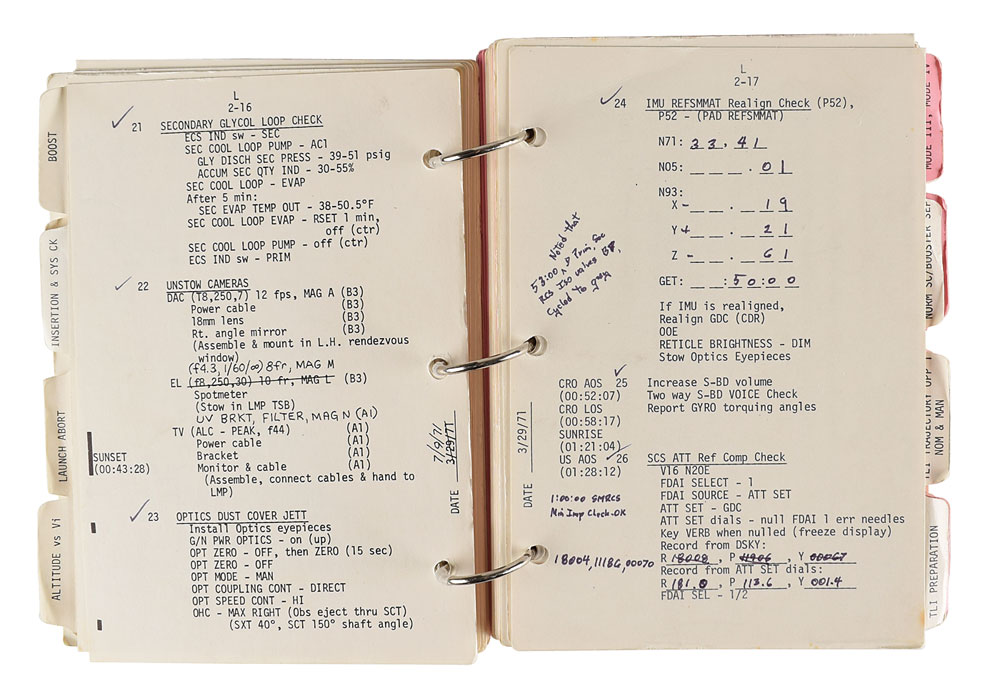 BOOST
INSERTION & SYS CK
LAUNCH ABORT
ALTITUDE vs Vi
L
2-16
✓ 21 SECONDARY GLYCOL LOOP CHECK
ECS IND sw - SEC
SEC COOL LOOP PUMP - AC1
GLY DISCH SEC PRESS - 39-51 psig
ACCUM SEC QTY IND - 30-55%
SEC COOL LOOP - EVAP
After 5 min:
SEC EVAP TEMP OUT - 38-50.5°F
SEC COOL LOOP EVAP - RSET 1 min,
off (ctr)
SEC COOL LOOP PUMP - off (ctr)
ECS IND sw - PRIM
✓ 22 UNSTOW CAMERAS
DAC (T8,250,7) 12 fps, MAG A (B3)
Power cable (B3)
18mm lens (B3)
Rt. angle mirror (B3)
(Assemble & mount in L.H. rendezvous
window)
(f4.3, 1/60/∞) 8fr, MAG M
EL (f8,250,30) 10 fr, MAG L (B3)
Spotmeter
(Stow in LMP TSB)
UV BRKT, FILTER, MAG N (A1)
TV (ALC - PEAK, f44) (A1)
Power cable (A1)
Bracket (A1)
Monitor & cable (A1)
(Assemble, connect cables & hand to
LMP)
SUNSET
(00:43:28)
✓ 23 OPTICS DUST COVER JETT
Install Optics eyepieces
G/N PWR OPTICS - on (up)
OPT ZERO - OFF, then ZERO (15 sec)
OPT ZERO - OFF
OPT MODE - MAN
OPT COUPLING CONT - DIRECT
OPT SPEED CONT - HI
OHC - MAX RIGHT (Obs eject thru SCT)
(SXT 40°, SCT 150° shaft angle)
7/9/71
DATE 3/29/71
L
2-17
✓ 24 IMU REFSMMAT Realign Check (P52),
P52 - (PAD REFSMMAT)
N71: 33.41
N05: _ _ _ . 01
N93:
X - _ _ . _ 19
Y + _ _ . _ 21
Z - _ _ . _ 61
GET: _ _ : 50:00
Noted that
53:00 Prim, Sec
RCS Iso valves BP,
Cycled to gray
If IMU is realigned,
Realign GDC (CDR)
OOE
RETICLE BRIGHTNESS - DIM
Stow Optics Eyepieces
CRO AOS ✓ 25 Increase S-BD volume
(00:52:07) Two way S-BD VOICE Check
CRO LOS Report GYRO torquing angles
(00:58:17)
SUNRISE
(01:21:04)
US AOS ✓ 26 SCS ATT Ref Comp Check
(01:28:12) V16 N20E
FDAI SELECT - 1
FDAI SOURCE - ATT SET
ATT SET - GDC
ATT SET dials - null FDAI 1 err needles
Key VERB when nulled (freeze display)
Record from DSKY:
1:00:00 SMRCS
Min Imp Check-OK
18004, 11186, 00070
R 18008, P 11966, Y 00067
Record from ATT SET dials:
R 181.0, P 113.6, Y 001.4
FDAI SEL - 1/2
DATE 3/29/71
MODE III, MODE IV
NORM SC/BOOSTER SEP
TLI TRAJECTORY OFF
NOM & MAN
TLI PREPARATION